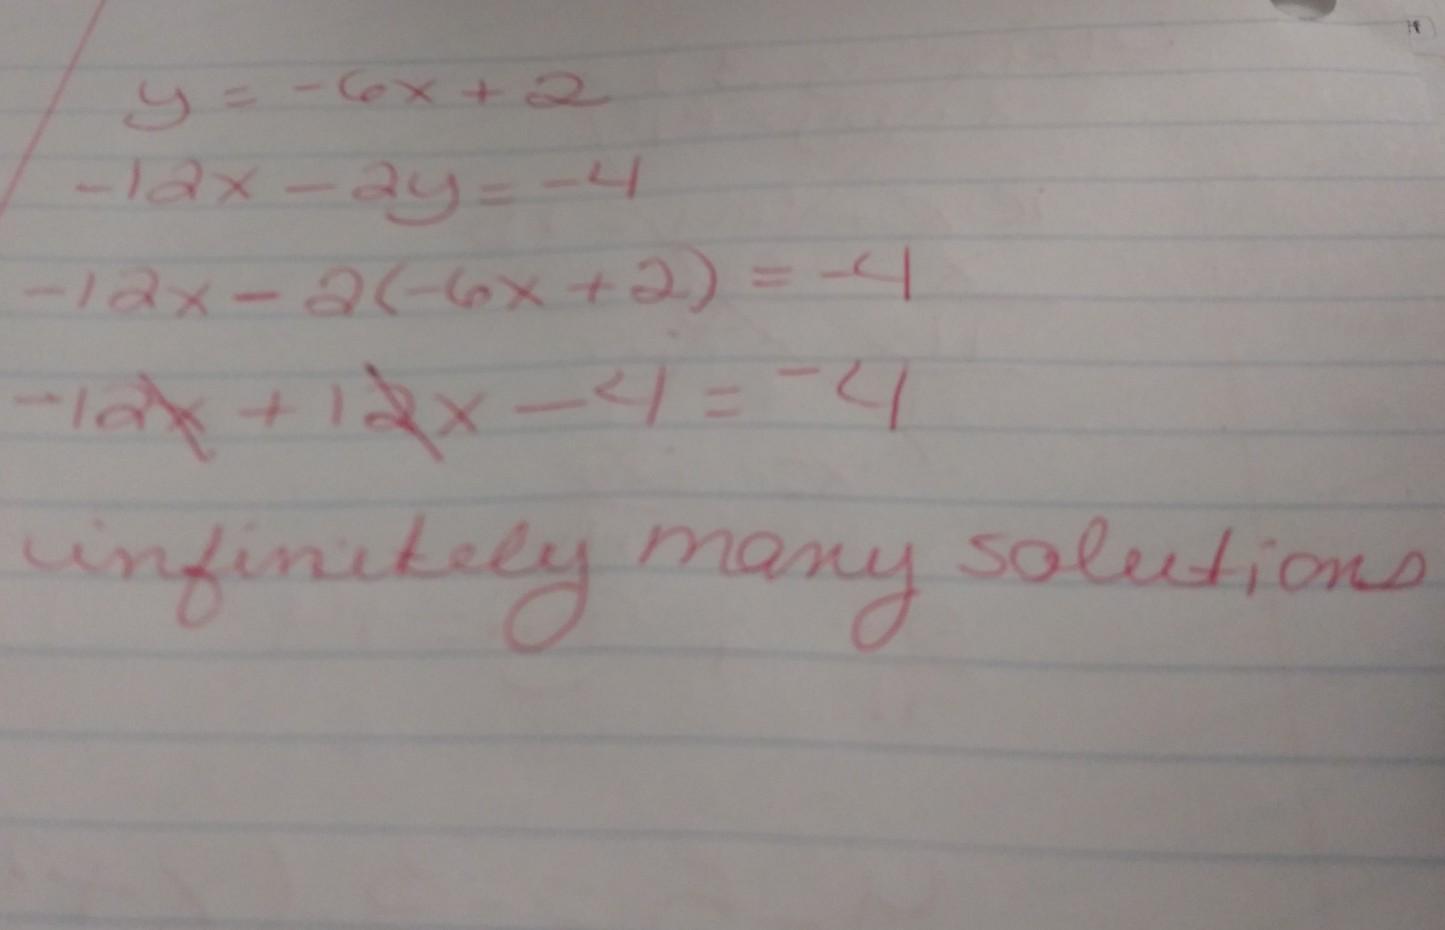 y = -6x + 2
-12x - 2y = -4
-12x - 2(-6x + 2) = -4
-12x + 12x - 4 = -4
infinitely many solutions